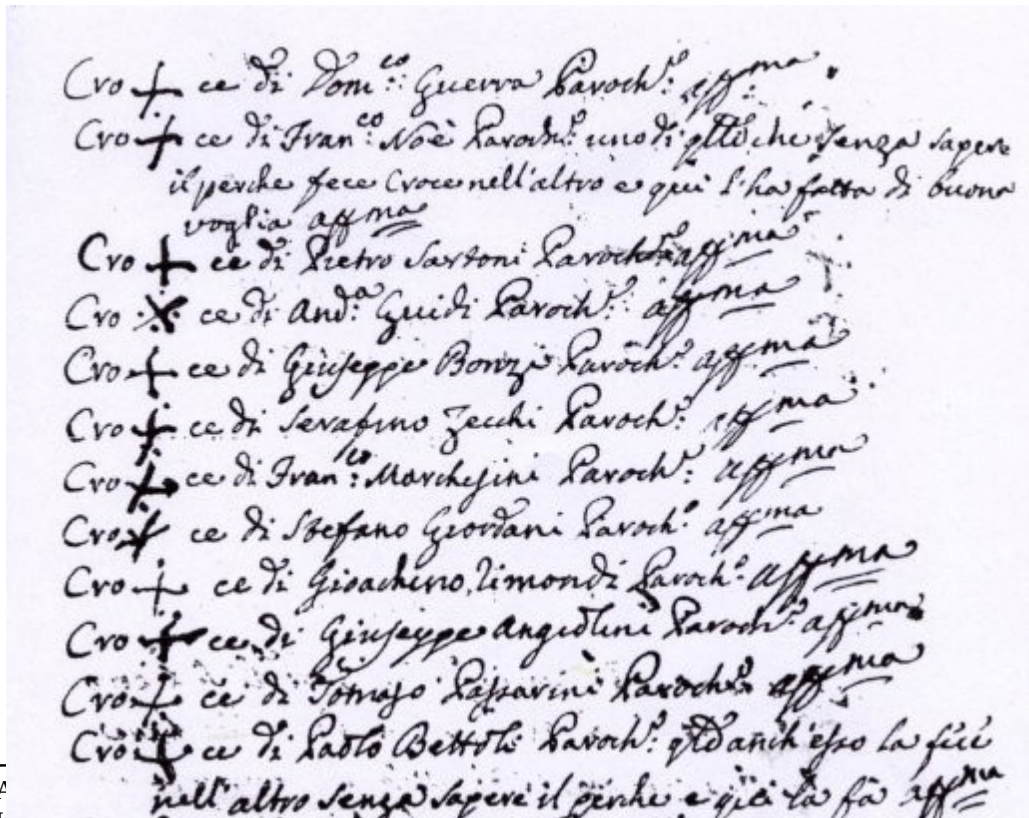 Cro + ce di Dom.co Guerra Paroch.o aff.ma
Cro + ce di Fran.co Noè Paroch.o uno di q.lli che senza sapere
il perche fece Croce nell'altro e qui l'ha fatta di buona
voglia affma
Cro + ce di Pietro Sartoni Paroch.o affma
Cro + ce di And.a Guidi Paroch.o affma
Cro + ce di Giuseppe Bonzi Paroch.o affma
Cro + ce di Serafino Zecchi Paroch.o affma
Cro + ce di Fran.co Marchesini Paroch.o affma
Cro + ce di Stefano Giordani Paroch.o affma
Cro + ce di Gioachino Limondi Paroch.o affma
Cro + ce di Giuseppe Angiolini Paroch.o affma
Cro + ce di Tomaso Passarini Paroch.o affma
Cro + ce di Paolo Bettoli Paroch.o anch'esso la fece
nell'altro senza sapere il perche e qui la fà affma